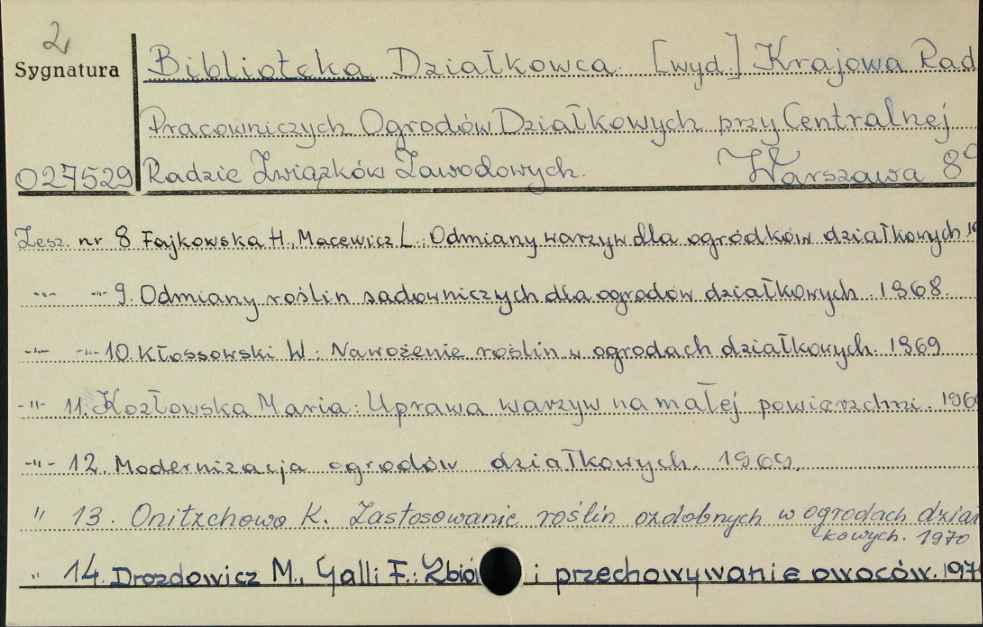 2
Sygnatura
Biblioteka Działkowca. [wyd.] Krajowa Rad
Pracowniczych Ogrodów Działkowych przy Centralnej
027529 Radzie Związków Zawodowych. Warszawa 8°
Zesz. nr 8 Fajkowska H., Macewicz L.: Odmiany warzyw dla ogródków działkowych 19
-"- -"- 9. Odmiany roślin sadowniczych dla ogrodów działkowych. 1968.
-"- -"- 10. Kłossowski W.: Nawożenie roślin w ogrodach działkowych. 1969
-"- 11. Kozłowska Maria: Uprawa warzyw na małej powierzchni. 196
-"- 12. Modernizacja ogrodów działkowych. 1969.
" 13. Onitzchowo K. Zastosowanie roślin ozdobnych w ogrodach dział
kowych. 1970
" 14. Drozdowicz M., Galli F.: Zbió i przechowywanie owoców. 197